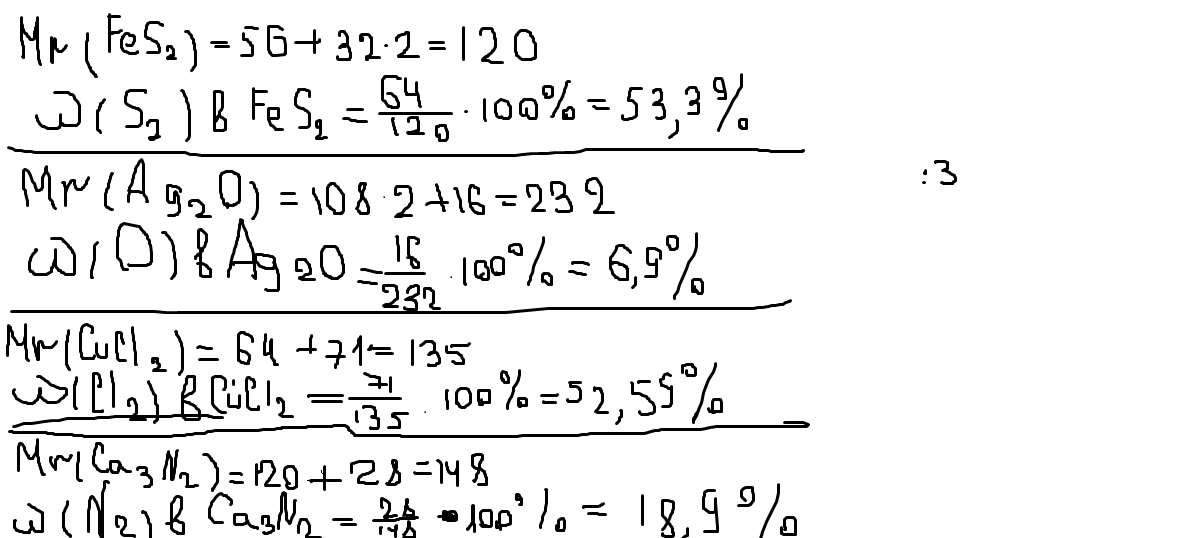 Mr(FeS₂)=56+32·2=120
ω(S₂) в FeS₂ = 64/120 · 100% = 53,3%
Mr(Ag₂O) = 108·2+16=232
:3
ω(O) в Ag₂O = 16/232 · 100% = 6,9%
Mr(CuCl₂) = 64+71=135
ω(Cl₂) в CuCl₂ = 71/135 · 100% = 52,59%
Mr(Ca₃N₂)=120+28=148
ω(N₂) в Ca₃N₂ = 28/148 · 100% = 18,9%